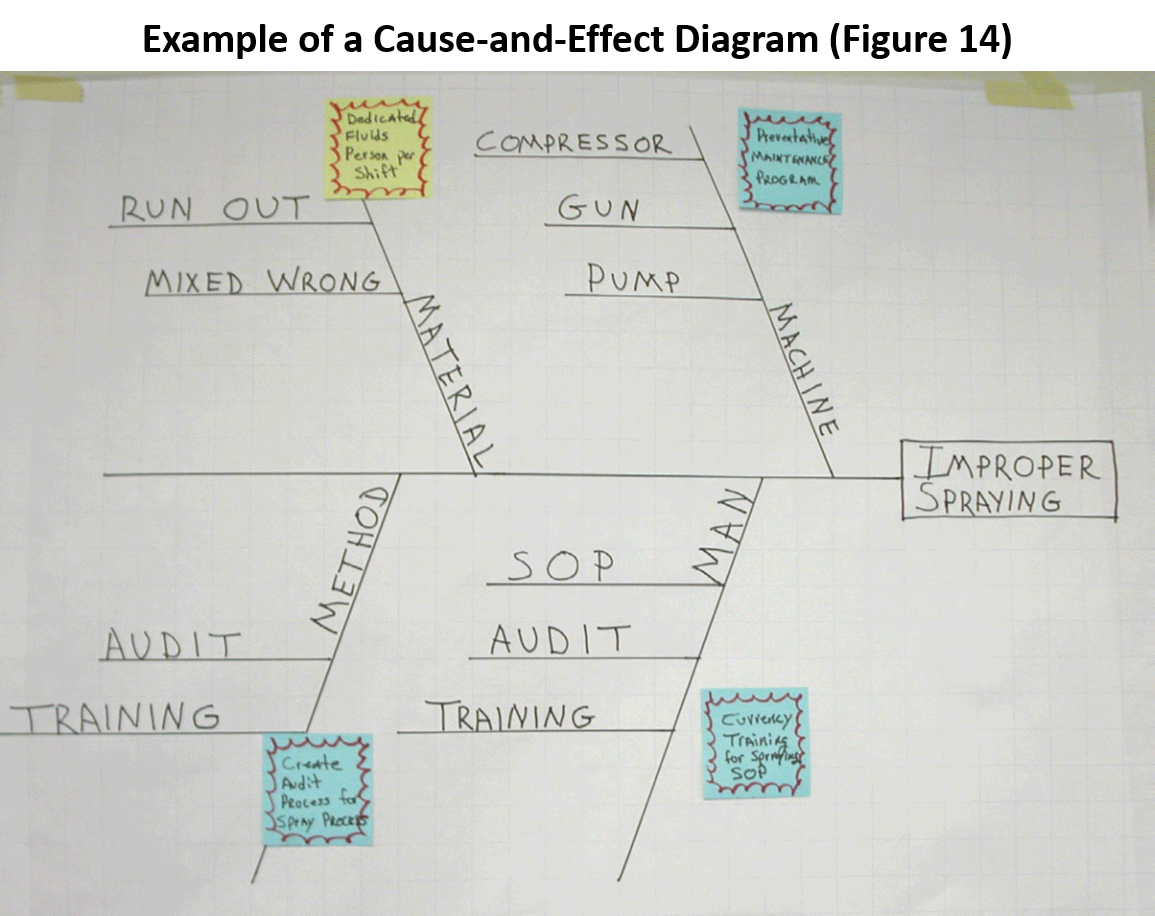 Example of a Cause-and-Effect Diagram (Figure 14)
Dedicated
Fluids
Person per
Shift
RUN OUT
MIXED WRONG
MATERIAL
COMPRESSOR
GUN
PUMP
MACHINE
Preventative
MAINTENANCE
PROGRAM
IMPROPER
SPRAYING
METHOD
AUDIT
TRAINING
Create
Audit
Process for
Spray Process
MAN
SOP
AUDIT
TRAINING
Currency
Training
for Spraying
SOP